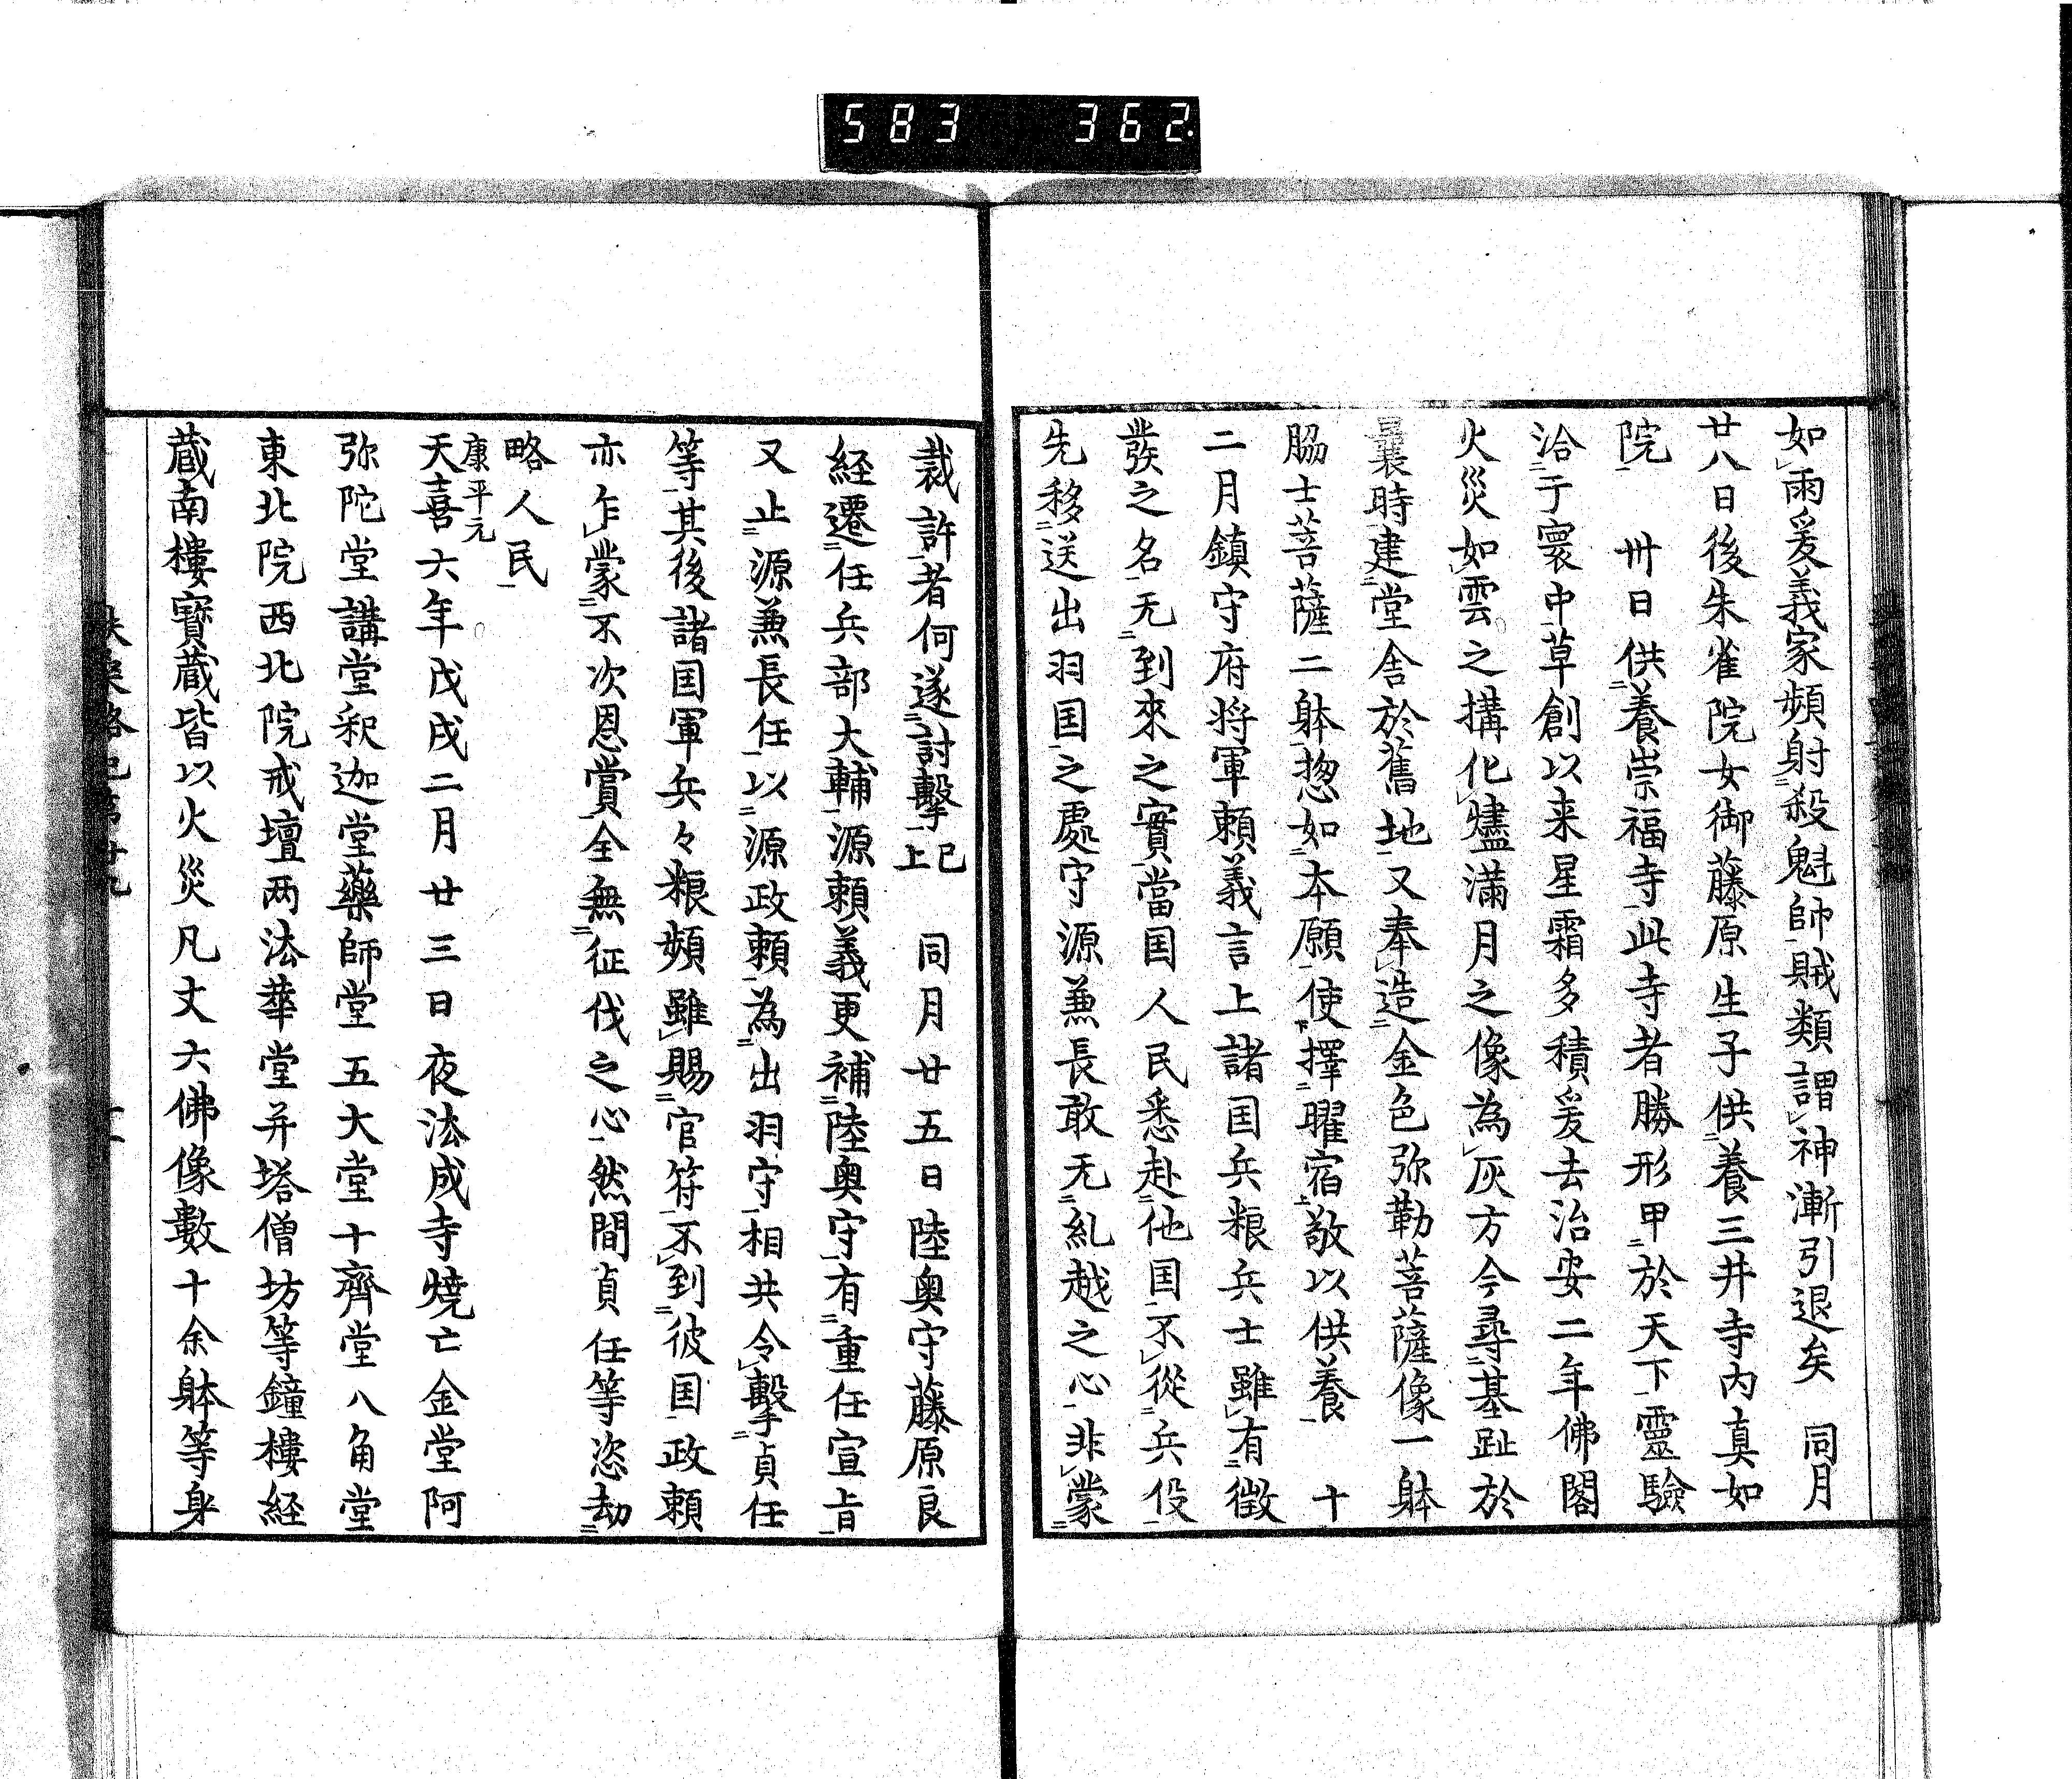 583 362
如雨爰義家頻射殺魁帥賊類謂神漸引退矣　同月
廿八日後朱雀院女御藤原生子供養三井寺内真如
院　卅日供養崇福寺此寺者勝形甲於天下靈驗
洽于寰中草創以来星霜多積爰去治安二年佛閣
火災如雲之搆化燼滿月之像為灰方今尋基趾於
曩時建堂舎於舊地又奉造金色弥勒菩薩像一躰
脇士菩薩二躰惣如本願使擇曜宿敬以供養　十
二月鎮守府将軍頼義言上諸国兵粮兵士雖有徴
發之名无到來之實當国人民悉赴他国不從兵役
先移送出羽国之處守源兼長敢无糺越之心非蒙
裁許者何遂討擊已上　同月廿五日陸奥守藤原良
経遷任兵部大輔源頼義更補陸奥守有重任宣旨
又止源兼長任以源政頼為出羽守相共令擊貞任
等其後諸国軍兵々粮頻雖賜官符不到彼国政頼
亦乍蒙不次恩賞全無征伐之心然間貞任等恣劫
略人民
康平元
天喜六年戊戌二月廿三日夜法成寺燒亡金堂阿
弥陀堂講堂釈迦堂藥師堂五大堂十齊堂八角堂
東北院西北院戒壇两法華堂并塔僧坊等鐘樓経
蔵南樓寳蔵皆以火災凡丈六佛像數十余躰等身